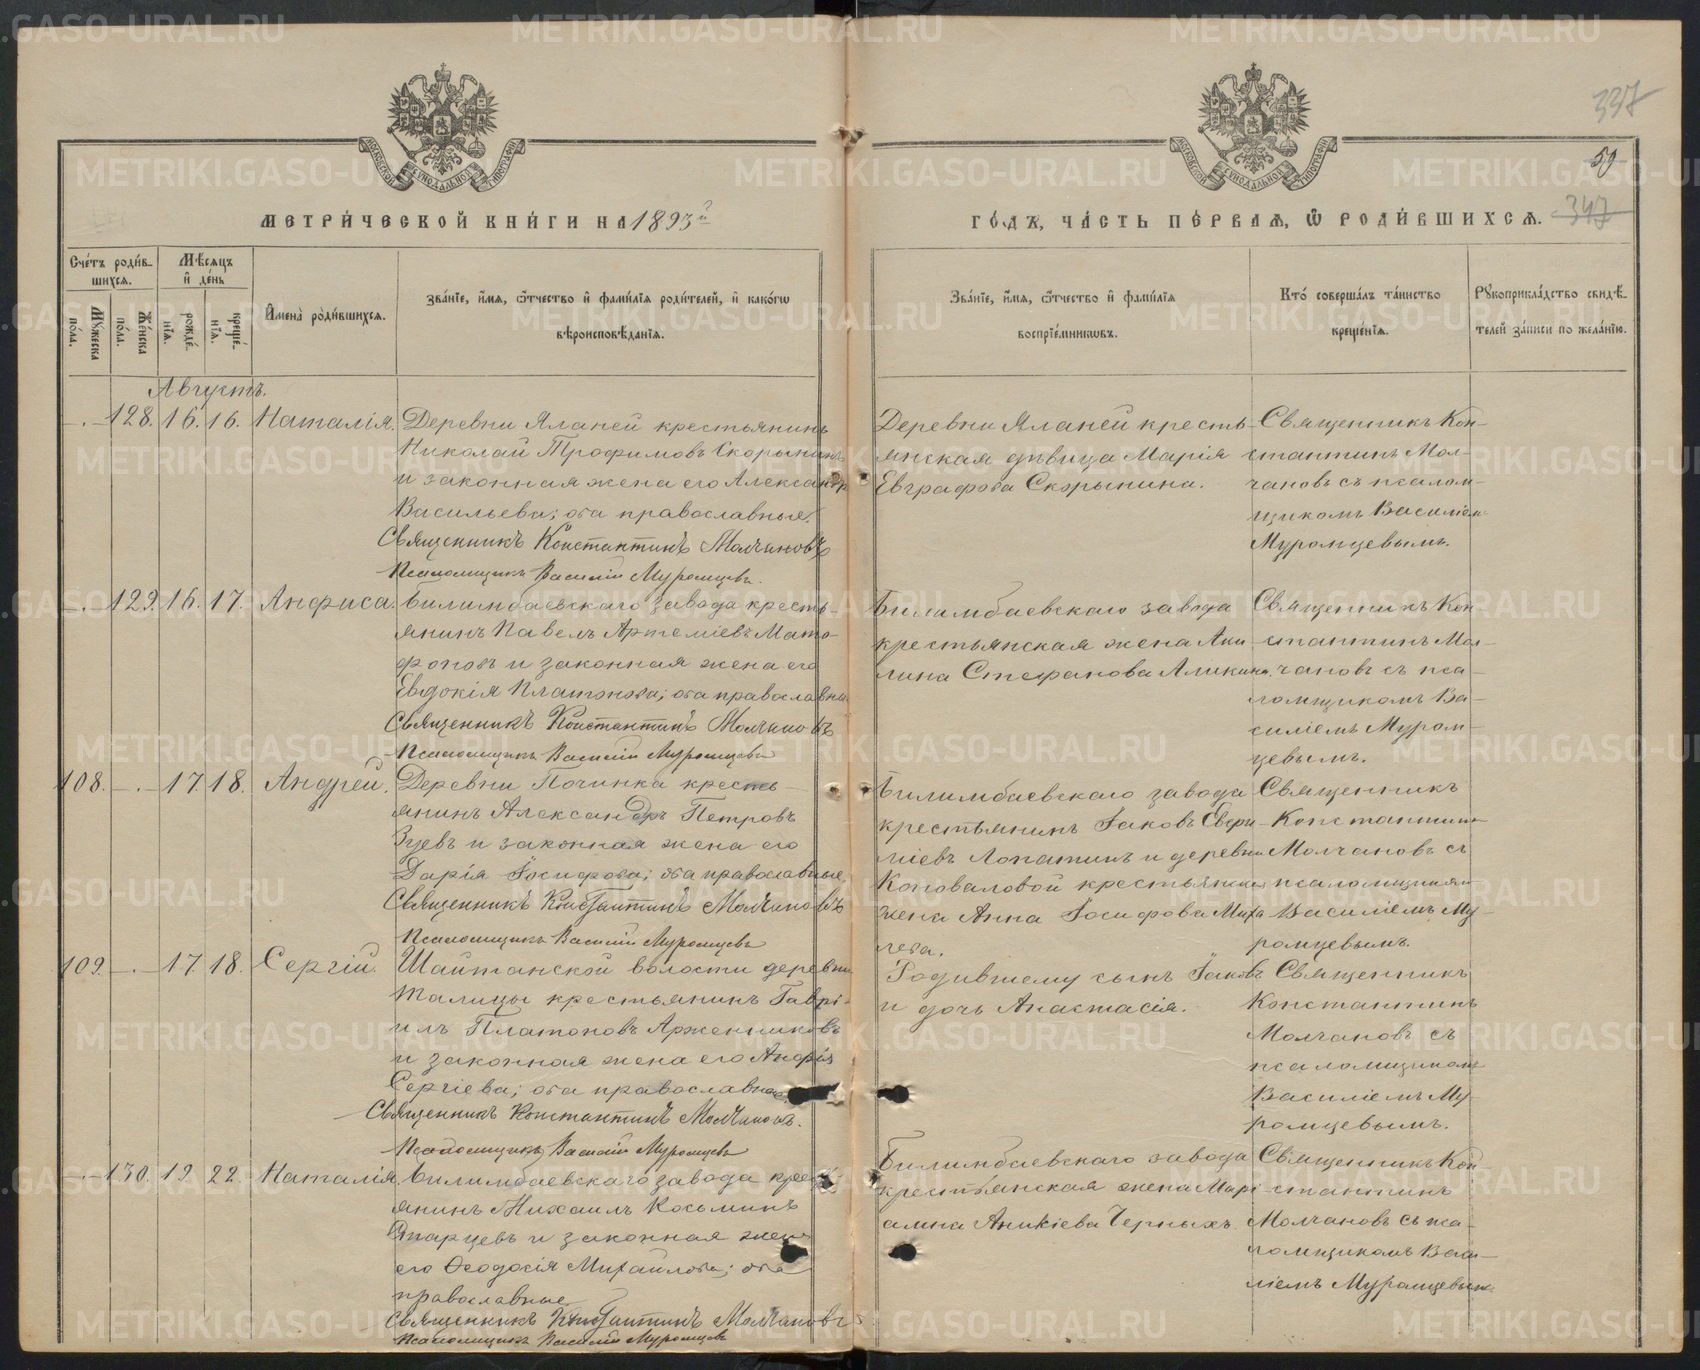 337
59
347
МОСКОВСКОЙ СѴНОДАЛЬНОЙ ТИПОГРАФІИ
МОСКОВСКОЙ СѴНОДАЛЬНОЙ ТИПОГРАФІИ
МЕТРИ́ЧЕСКОЙ КНИ́ГИ НА 1893й
ГО́ДЪ, ЧА́СТЬ ПЕ́РВАѦ, Ѡ҆ РОДИ́ВШИХСѦ.
Сче́тъ роди́в-
шихсѧ.
Мꙋжеска по́ла.
Же́нска по́ла.
Мѣ́сѧцъ
и҆ де́нь
рожде́-нїѧ.
креще́-нїѧ.
И҆мена̀ роди́вшихсѧ.
Зва́нїе, и҆́мѧ, ѻ҆́тчество и҆ фами́лїѧ роди́телей, и҆ како́гѡ
вѣроисповѣ́данїѧ.
Зва́нїе, и҆́мѧ, ѻ҆́тчество и҆ фами́лїѧ
воспрїе́мникѡвъ.
Кто̀ соверша́лъ та́инство
креще́нїѧ.
Рꙋкоприкла́дство свидѣ́-
телей за́писи по жела́нїю.
Августъ.
-.- 128. 16. 16. Наталія. Деревни Яланей крестьянинъ
Николай Трофимовъ Скорынинъ
и законная жена его Александра
Васильева; оба православные.
Священникъ Константинъ Молчановъ
Псаломщикъ Василій Муромцевъ.
Деревни Яланей кресть-
янская дѣвица Марія
Евграфова Скорынина.
Священникъ Кон-
стантинъ Мол-
чановъ съ псалом-
щикомъ Василіем
Муромцевымъ.
-.- 129. 16. 17. Анфиса. Билимбаевскаго завода кресть-
янинъ Павелъ Артеміевъ Мато-
фоновъ и законная жена его
Евдокія Платонова; оба православны
Священникъ Константинъ Молчановъ
Псаломщикъ Василій Муромцевъ
Билимбаевскаго завода
крестьянская жена Аки-
лина Стефанова Аликина.
Священникъ Кон-
стантинъ Мол-
чановъ съ пса-
ломщикомъ Ва-
силіемъ Муром-
цевымъ.
108. -.- 17. 18. Андрей. Деревни Починка кресть-
янинъ Александръ Петровъ
Зуевъ и законная жена его
Дарія Іосифова; оба православные
Священникъ Константинъ Молчановъ
Псаломщикъ Василій Муромцевъ
Билимбаевскаго завода
крестьянинъ Іаковъ
Лопатинъ и деревни
Коноваловой крестьянская
жена Анна Іосифова
Священникъ
Константинъ
Молчановъ съ
псаломщикомъ
Василіемъ Му-
ромцевымъ.
109. -.- 17. 18. Сергій. Шайтанской волости деревни
Талицы крестьянинъ Гаврі-
илъ Платоновъ Арженниковъ
и законная жена его Анфія
Сергіева; оба православные.
Священникъ Константинъ Молчановъ.
Псаломщикъ Василій Муромцевъ
Родившему сынъ Іаковъ
и дочь Анастасія.
Священникъ
Константинъ
Молчановъ съ
псаломщикомъ
Василіемъ Му-
ромцевымъ.
-.- 130. 19. 22. Наталія. Билимбаевскаго завода крес
янинъ Михаилъ Косьминъ
Старцевъ и законная жена
его Ѳеодосія Михайлова; оба
православные
Священникъ Константинъ Молчановъ
Псаломщикъ Василій Муромцевъ
Билимбаевскаго завода
крестьянская жена Марі-
амна Аникіева Черныхъ.
Священникъ Кон-
стантинъ
Молчановъ съ пса-
ломщикомъ Васи-
ліемъ Муромцевым
METRIKI.GASO-URAL.RU